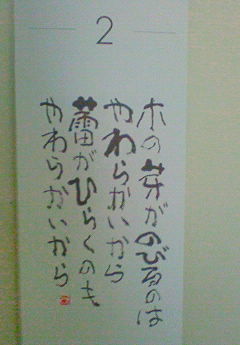 2
木の芽がのびるのは
やわらかいから
蕾がひらくのも
やわらかいから